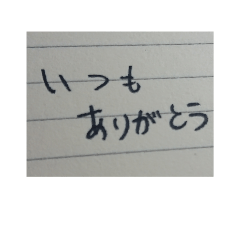 いつも
ありがとう